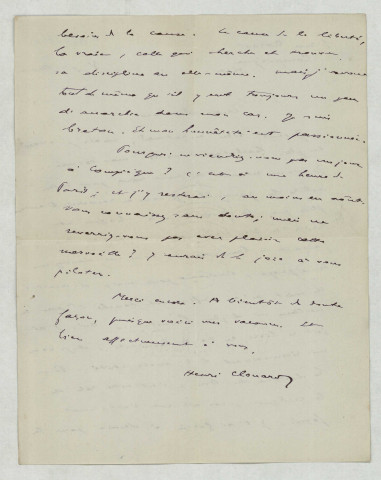 besoin de la cause. La cause de la liberté,
la vraie, celle qui cherche et trouve
sa discipline en elle-même. Mais j'avoue
tout de même qu'il y eut toujours un peu
d'anarchie dans mon cas. Je suis
breton. Et mon humeur est passionnée.
Pourquoi ne viendriez-vous pas un jour
à Compiègne ? C'est à une heure de
Paris ; et j'y resterai, au moins en août.
Vous connaissez sans doute ; mais ne
reverriez-vous pas avec plaisir cette
merveille ? J'aurais de la joie à vous
piloter.
Merci encore. A bientôt de toute
façon, puisque voici vos vacances. Et
bien affectueusement à vous.
Henri Clouard